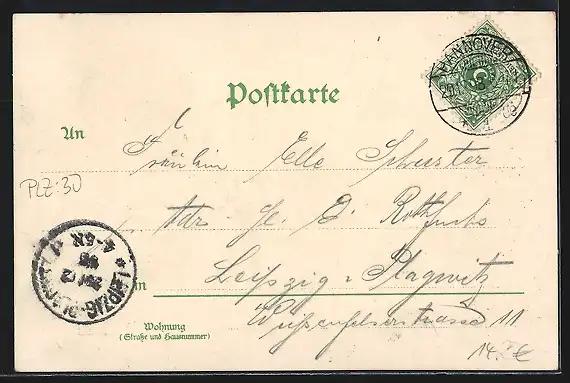 HANNOVER
Postkarte
An
Fräulein Elle Schuster
PLZ: 30
Adr. H. E. Rothfuchs
in Leipzig-Plagwitz
LEIPZIG-PLAGWITZ
4-5N
Weißenfelserstrasse 11
Wohnung
(Straße und Hausnummer)
14.- €